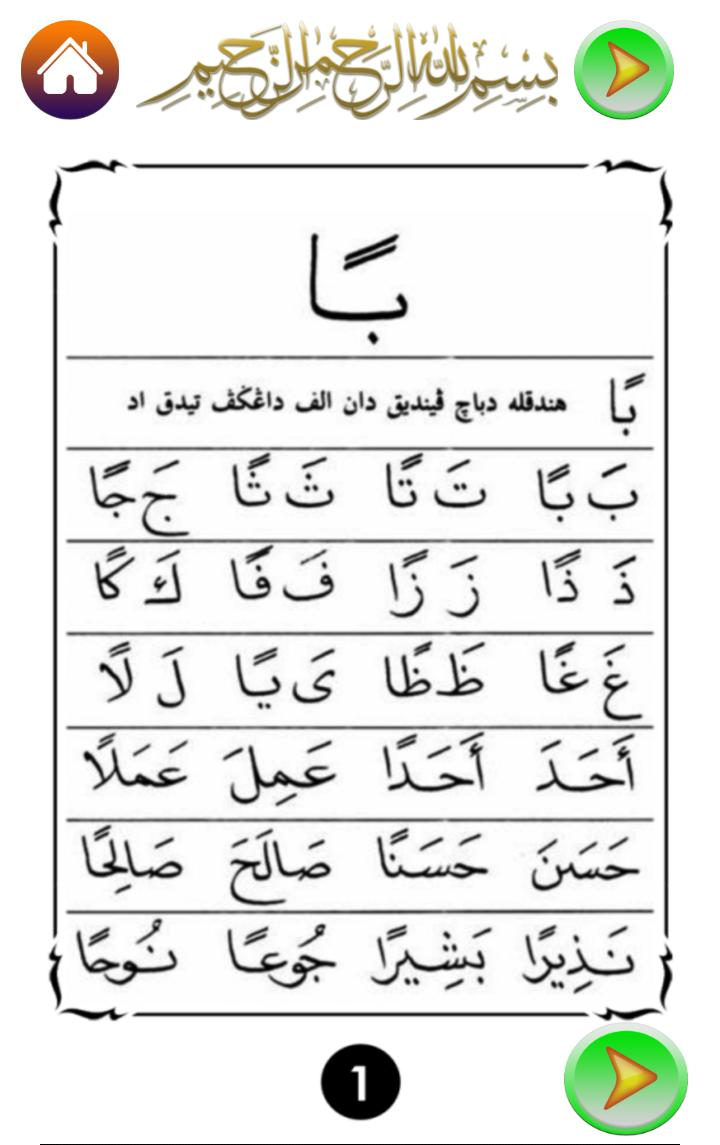 بسم الله الرحمن الرحيم
بًا
بًا هندقله دباچ ڤينديق دان الف داڠكڤ تيدق اد
بَ بًا تَ تًا ثَ ثًا جَ جًا
ذَ ذًا زَ زًا فَ فًا كَ كًا
غَ غًا ظَ ظًا يَ يًا لَ لًا
أَحَدَ أَحَدًا عَمِلَ عَمَلًا
حَسَنَ حَسَنًا صَالَحَ صَالِحًا
نَذِيرًا بَشِيرًا جُوعًا نُوحًا
1